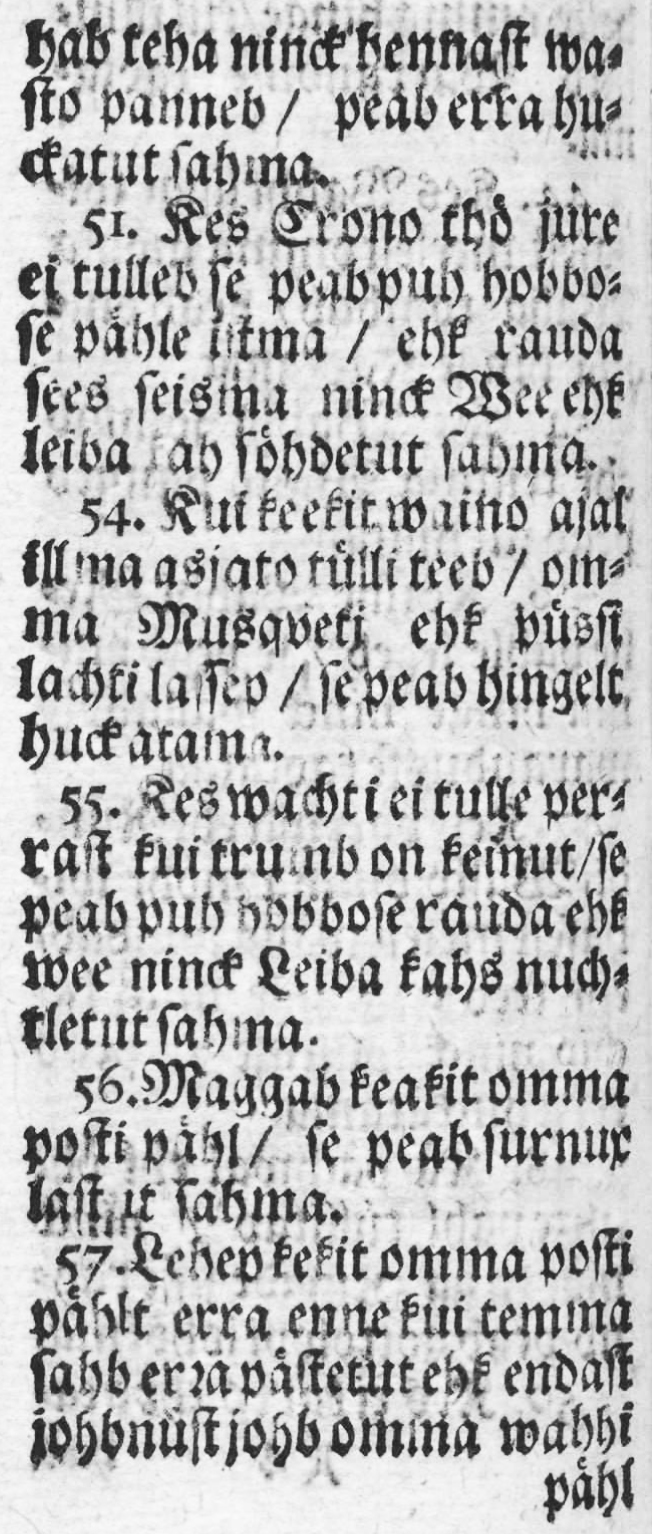 hab teha ninck hennast wa-
sto panneb / peab erra hu-
ckatut sahma.
51. Kes Crono thö jure
ei tulleb se peab puh hobbo-
se pähle istma / ehk rauda
sees seisma ninck Wee ehk
leiba kah söhdetut sahma.
54. Kui keekit waino ajal
illma asjato tülli teeb / om-
ma Musqveti ehk püssi
lachti lassep / se peab hingelt
huckatama.
55. Kes wachti ei tulle per-
rast kui trumb on keinut / se
peab puh hobbose rauda ehk
wee ninck Leiba kahs nuch-
tletut sahma.
56. Maggab keakit omma
posti pähl / se peab surnux
lastut sahma.
57. Lehep kekit omma posti
pählt erra enne kui temma
sahb erra pästetut ehk endast
johbnust johb omma wahhi
pähl